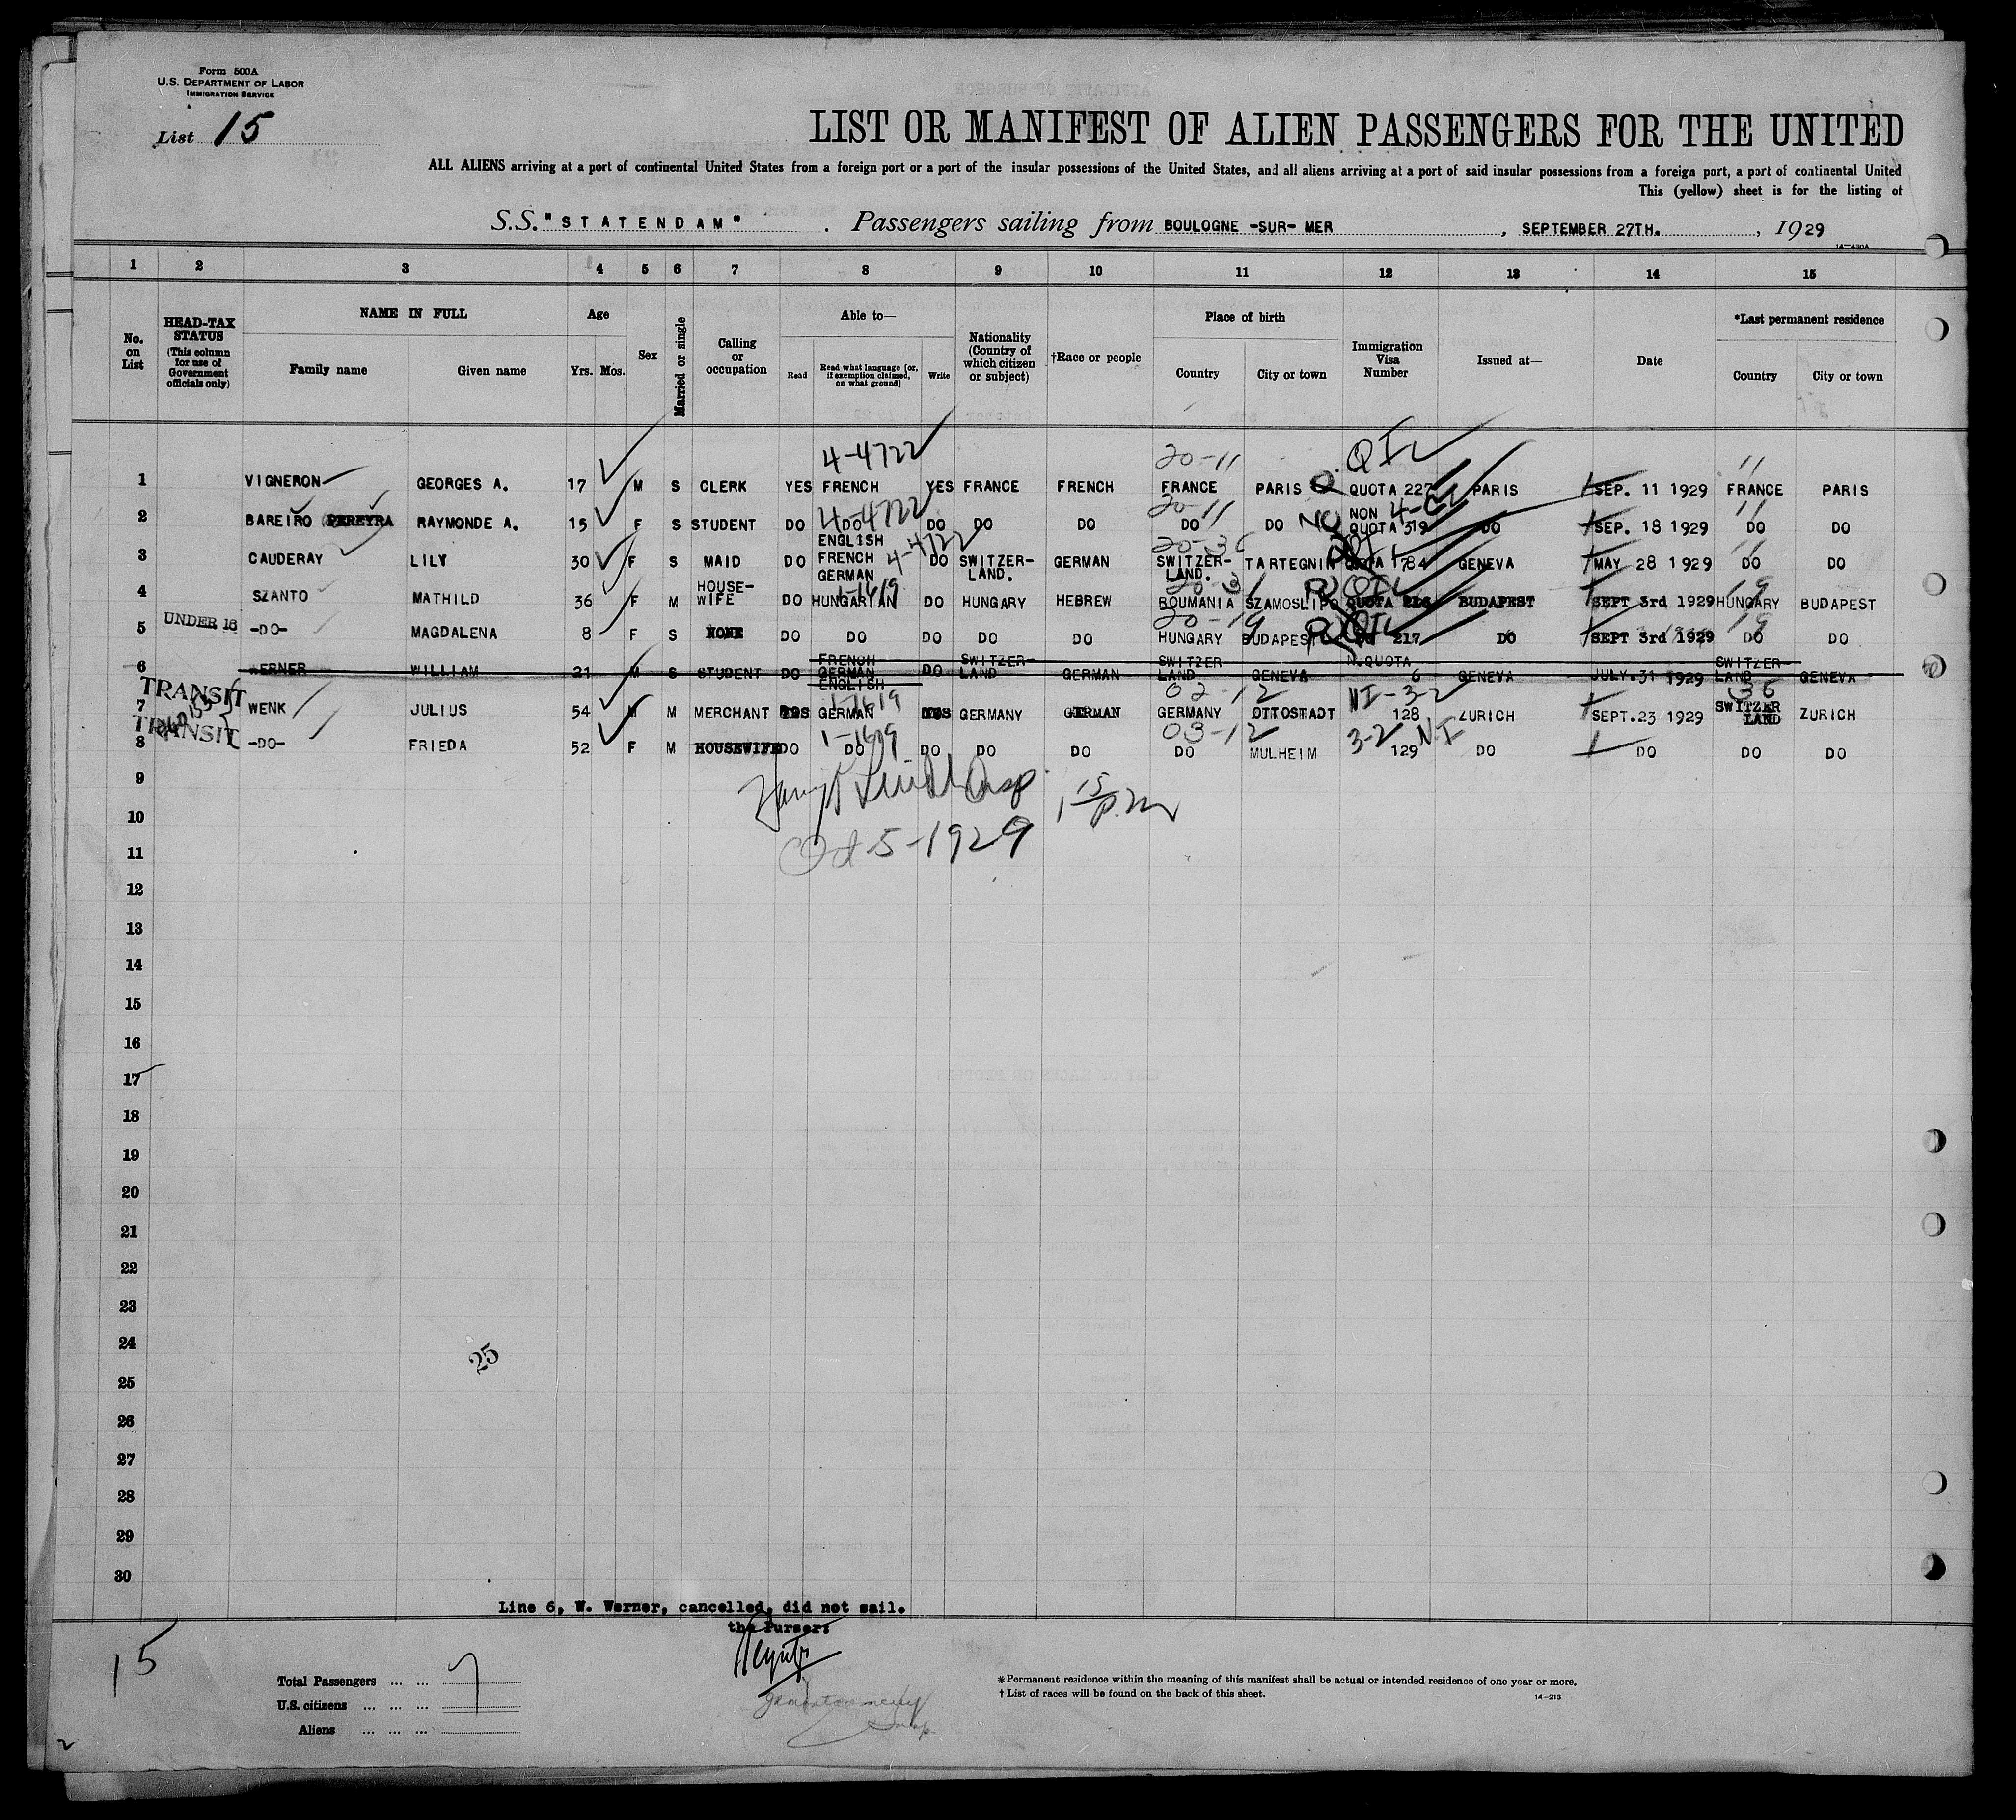 Form 500A
U.S. DEPARTMENT OF LABOR
IMMIGRATION SERVICE
List 15
LIST OR MANIFEST OF ALIEN PASSENGERS FOR THE UNITED
ALL ALIENS arriving at a port of continental United States from a foreign port or a port of the insular possessions of the United States, and all aliens arriving at a port of said insular possessions from a foreign port, a port of continental United
This (yellow) sheet is for the listing of
S.S. "STATENDAM" . Passengers sailing from BOULOGNE -SUR- MER , SEPTEMBER 27TH. , 1929
14-430A
1 2 3 4 5 6 7 8 9 10 11 12 13 14 15
No. on List
HEAD-TAX STATUS (This column for use of Government officials only)
NAME IN FULL
Family name Given name
Age
Yrs. Mos.
Sex
Married or single
Calling or occupation
Able to—
Read Read what language [or, if exemption claimed, on what ground] Write
Nationality (Country of which citizen or subject)
†Race or people
Place of birth
Country City or town
Immigration Visa Number
Issued at—
Date
*Last permanent residence
Country City or town
4-4722 20-11 QIV 11
1 VIGNERON GEORGES A. 17 M S CLERK YES FRENCH YES FRANCE FRENCH FRANCE PARIS QUOTA 227 PARIS SEP. 11 1929 FRANCE PARIS
4-4722 20-11 11
2 BAREIRO PEREYRA RAYMONDE A. 15 F S STUDENT DO DO DO DO DO DO DO NON QUOTA 319 DO SEP. 18 1929 DO DO
4-4722 20-36 11
3 CAUDERAY LILY 30 F S MAID DO ENGLISH FRENCH GERMAN DO SWITZER-LAND. GERMAN SWITZER-LAND. TARTEGNIN QUOTA 1784 GENEVA MAY 28 1929 DO DO
1-1619 19
4 SZANTO MATHILD 36 F M HOUSE-WIFE DO HUNGARIAN DO HUNGARY HEBREW ROUMANIA SZAMOSLIPO QUOTA 216 BUDAPEST SEPT 3rd 1929 HUNGARY BUDAPEST
20-19 19
UNDER 16
5 -DO- MAGDALENA 8 F S NONE DO DO DO DO DO HUNGARY BUDAPEST DO 217 DO SEPT 3rd 1929 DO DO
6 WERNER WILLIAM 21 M S STUDENT DO FRENCH GERMAN ENGLISH DO SWITZER-LAND GERMAN SWITZER LAND GENEVA N.QUOTA 6 GENEVA JULY.31 1929 SWITZER-LAND GENEVA
TRANSIT
1-1619 02-12 NI-3-2 36
7 WENK JULIUS 54 M M MERCHANT YES GERMAN YES GERMANY GERMAN GERMANY OTTOSTADT 128 ZURICH SEPT.23 1929 SWITZER LAND ZURICH
TRANSIT
1-1619 03-12 3-2 NI
8 -DO- FRIEDA 52 F M HOUSEWIFE DO DO DO DO DO DO MULHEIM 129 DO DO DO DO
9
10
Oct 5-1929
11
12
13
14
15
16
17
18
19
20
21
22
23
24
25
25
26
27
28
29
30
Line 6, W. Werner, cancelled, did not sail.
the Purser:
15
Total Passengers ... ... 7
U.S. citizens ... ... ...
Aliens ... ... ...
*Permanent residence within the meaning of this manifest shall be actual or intended residence of one year or more.
†List of races will be found on the back of this sheet.
14-213
2